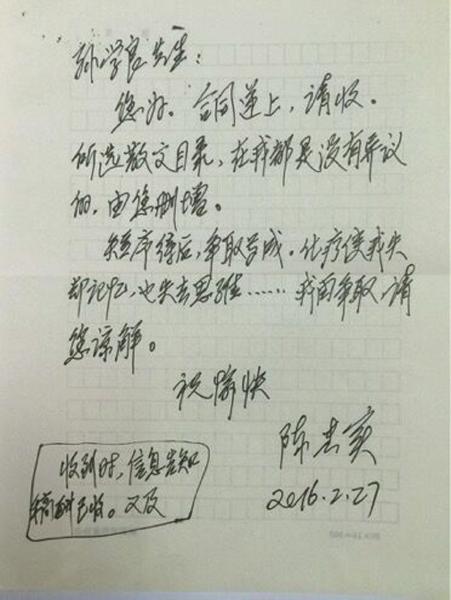 孙学良先生：
您好。合同送上，请收。
所选散文目录，在我都是没有异议
的，由您删增。
短序待后，争取写成。化疗使我失
却记忆，也失去思维……我因争取，请
您谅解。
祝愉快
陈忠实
2016.2.27
收到时，信息告知
稿酬已收。又及